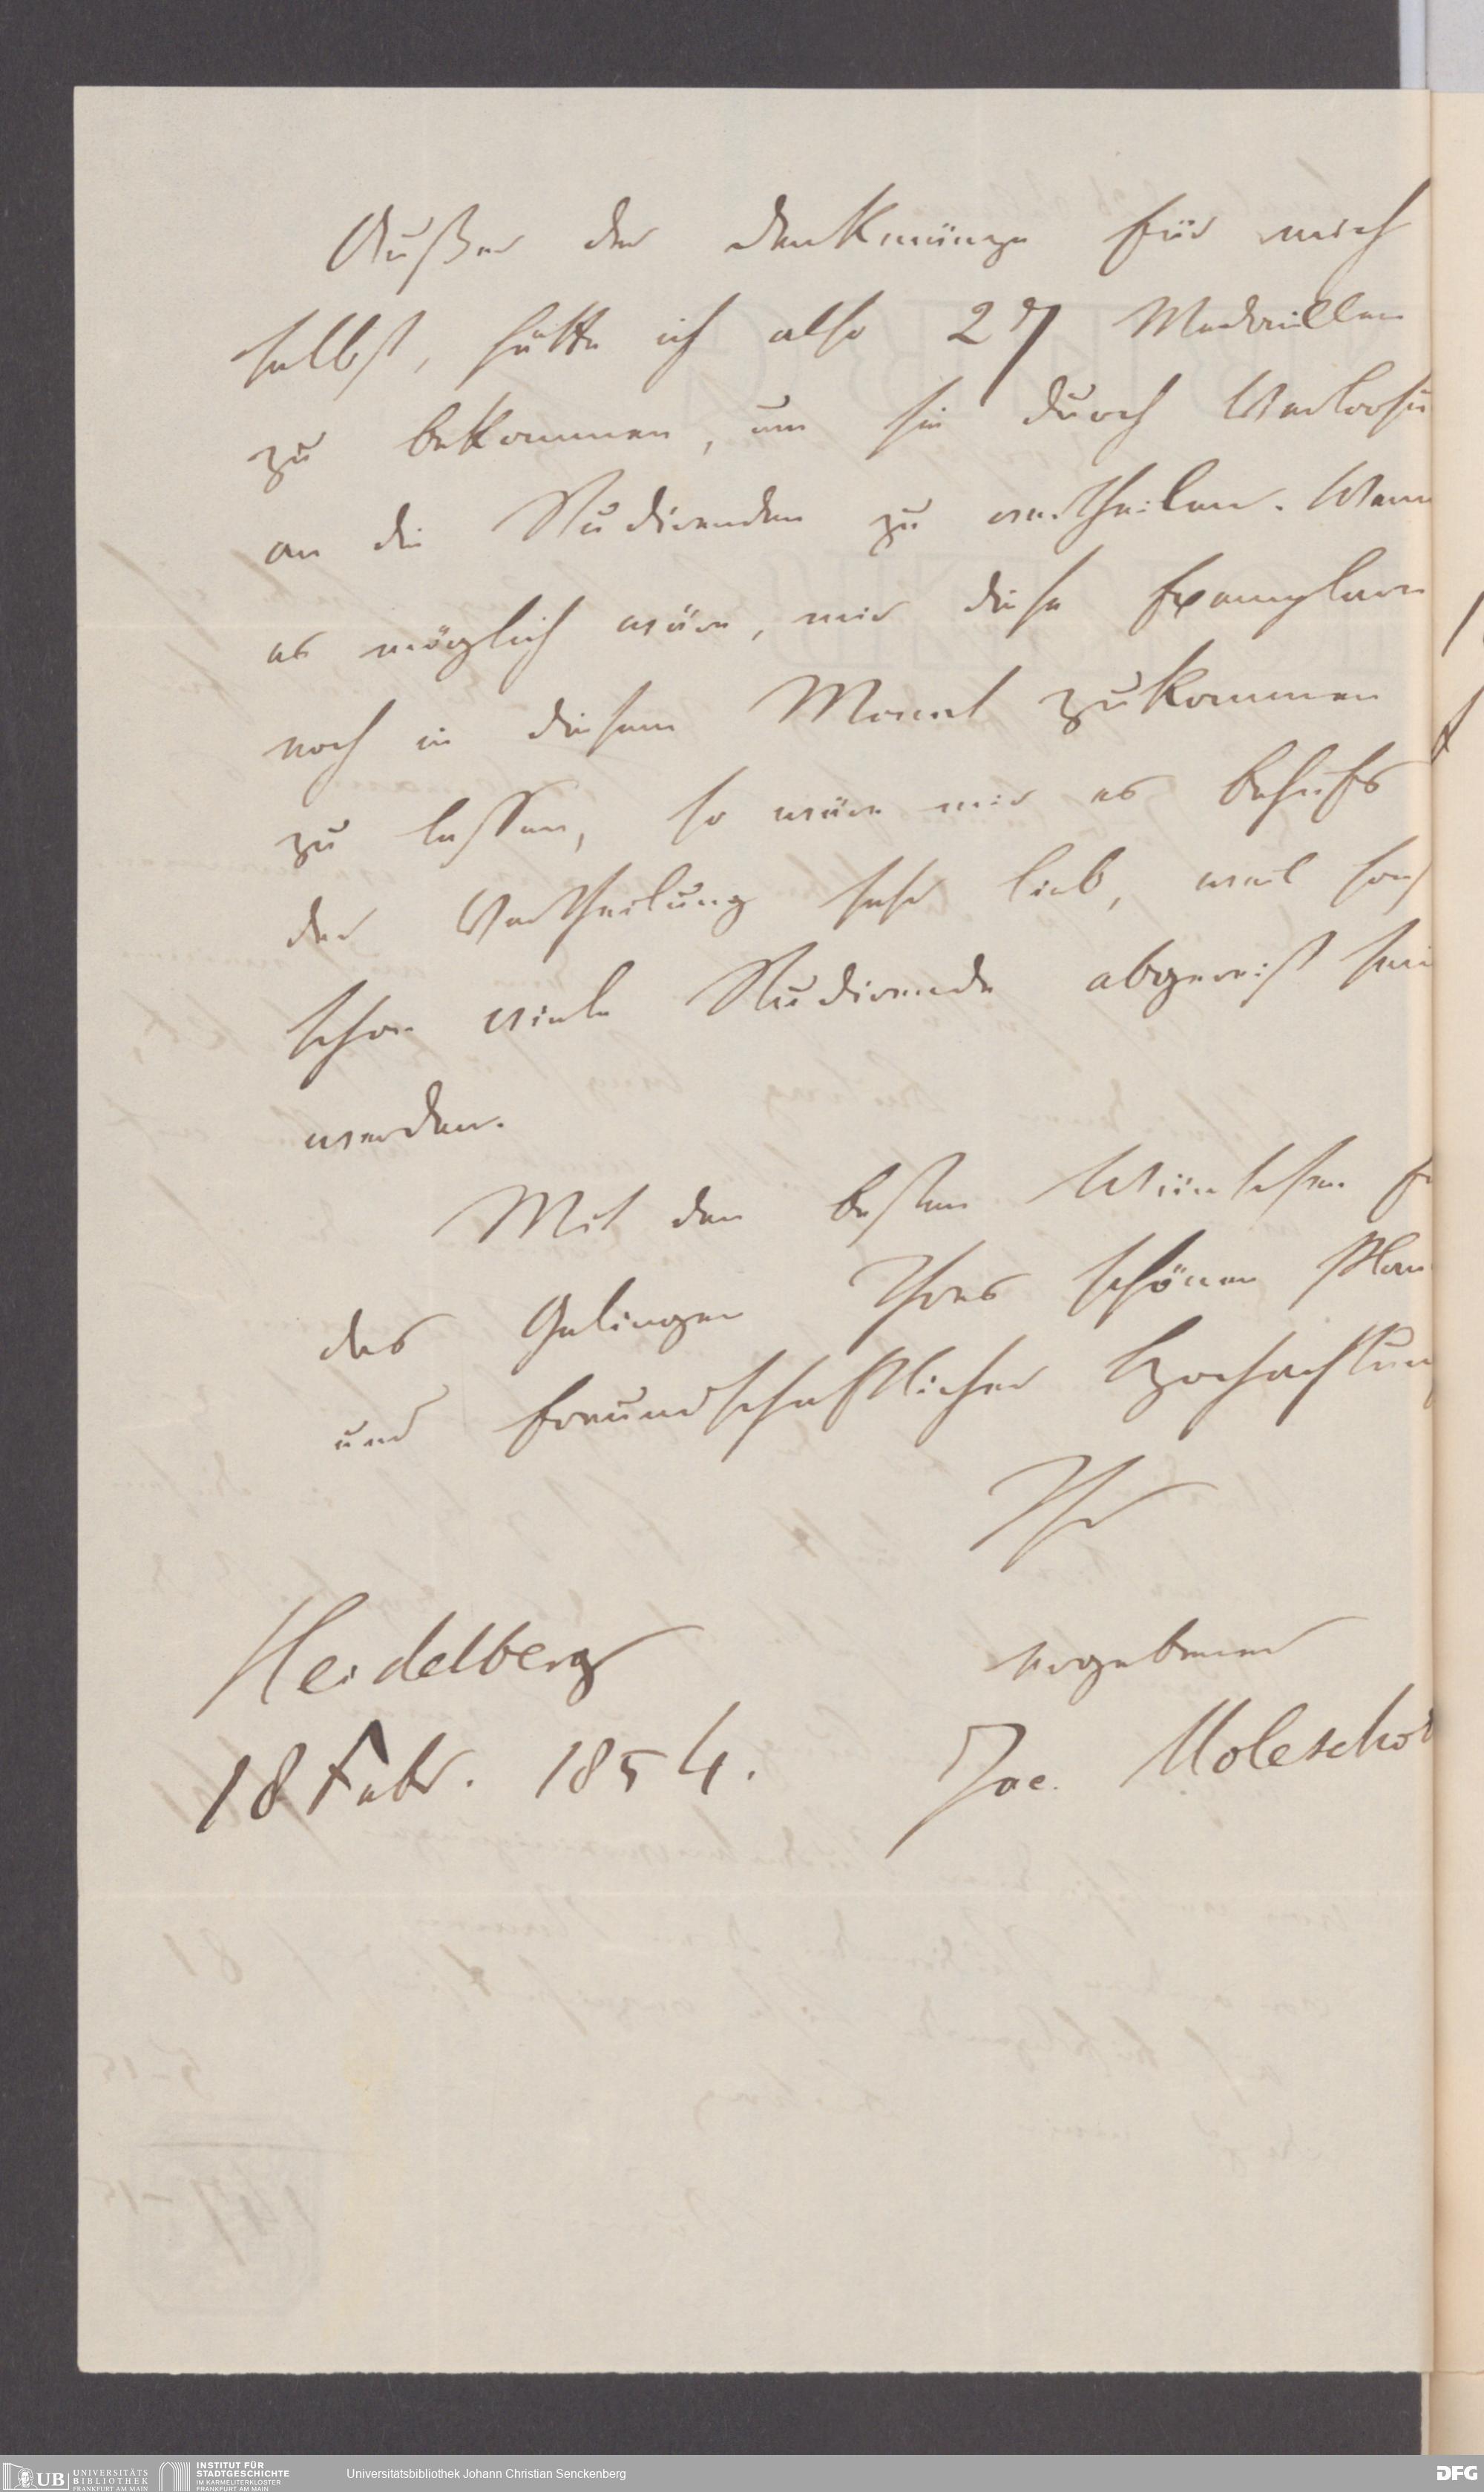 Außer der Denkmünze für mich
selbst, hätte ich also 27 Medaillen
zu bekommen, um sie durch Verloosu
an die Studirenden zu vertheilen. Wenn
es möglich wäre, mir diese Exemplare
noch in diesem Monat zukommen
zu lassen, so wäre mir es behufs
der Vertheilung sehr lieb, weil sons
schon viele Studirende abgereist sein
werden.
Mit den besten Wünschen fü
das Gelingen Ihres schönen Plan
und freundschaftlicher Hochachtung
Ihr
Heidelberg ergebener
18 Febr. 1854. Jac. Moleschot
UB UNIVERSITÄTS BIBLIOTHEK FRANKFURT AM MAIN
INSTITUT FÜR STADTGESCHICHTE IM KARMELITERKLOSTER FRANKFURT AM MAIN
Universitätsbibliothek Johann Christian Senckenberg
DFG